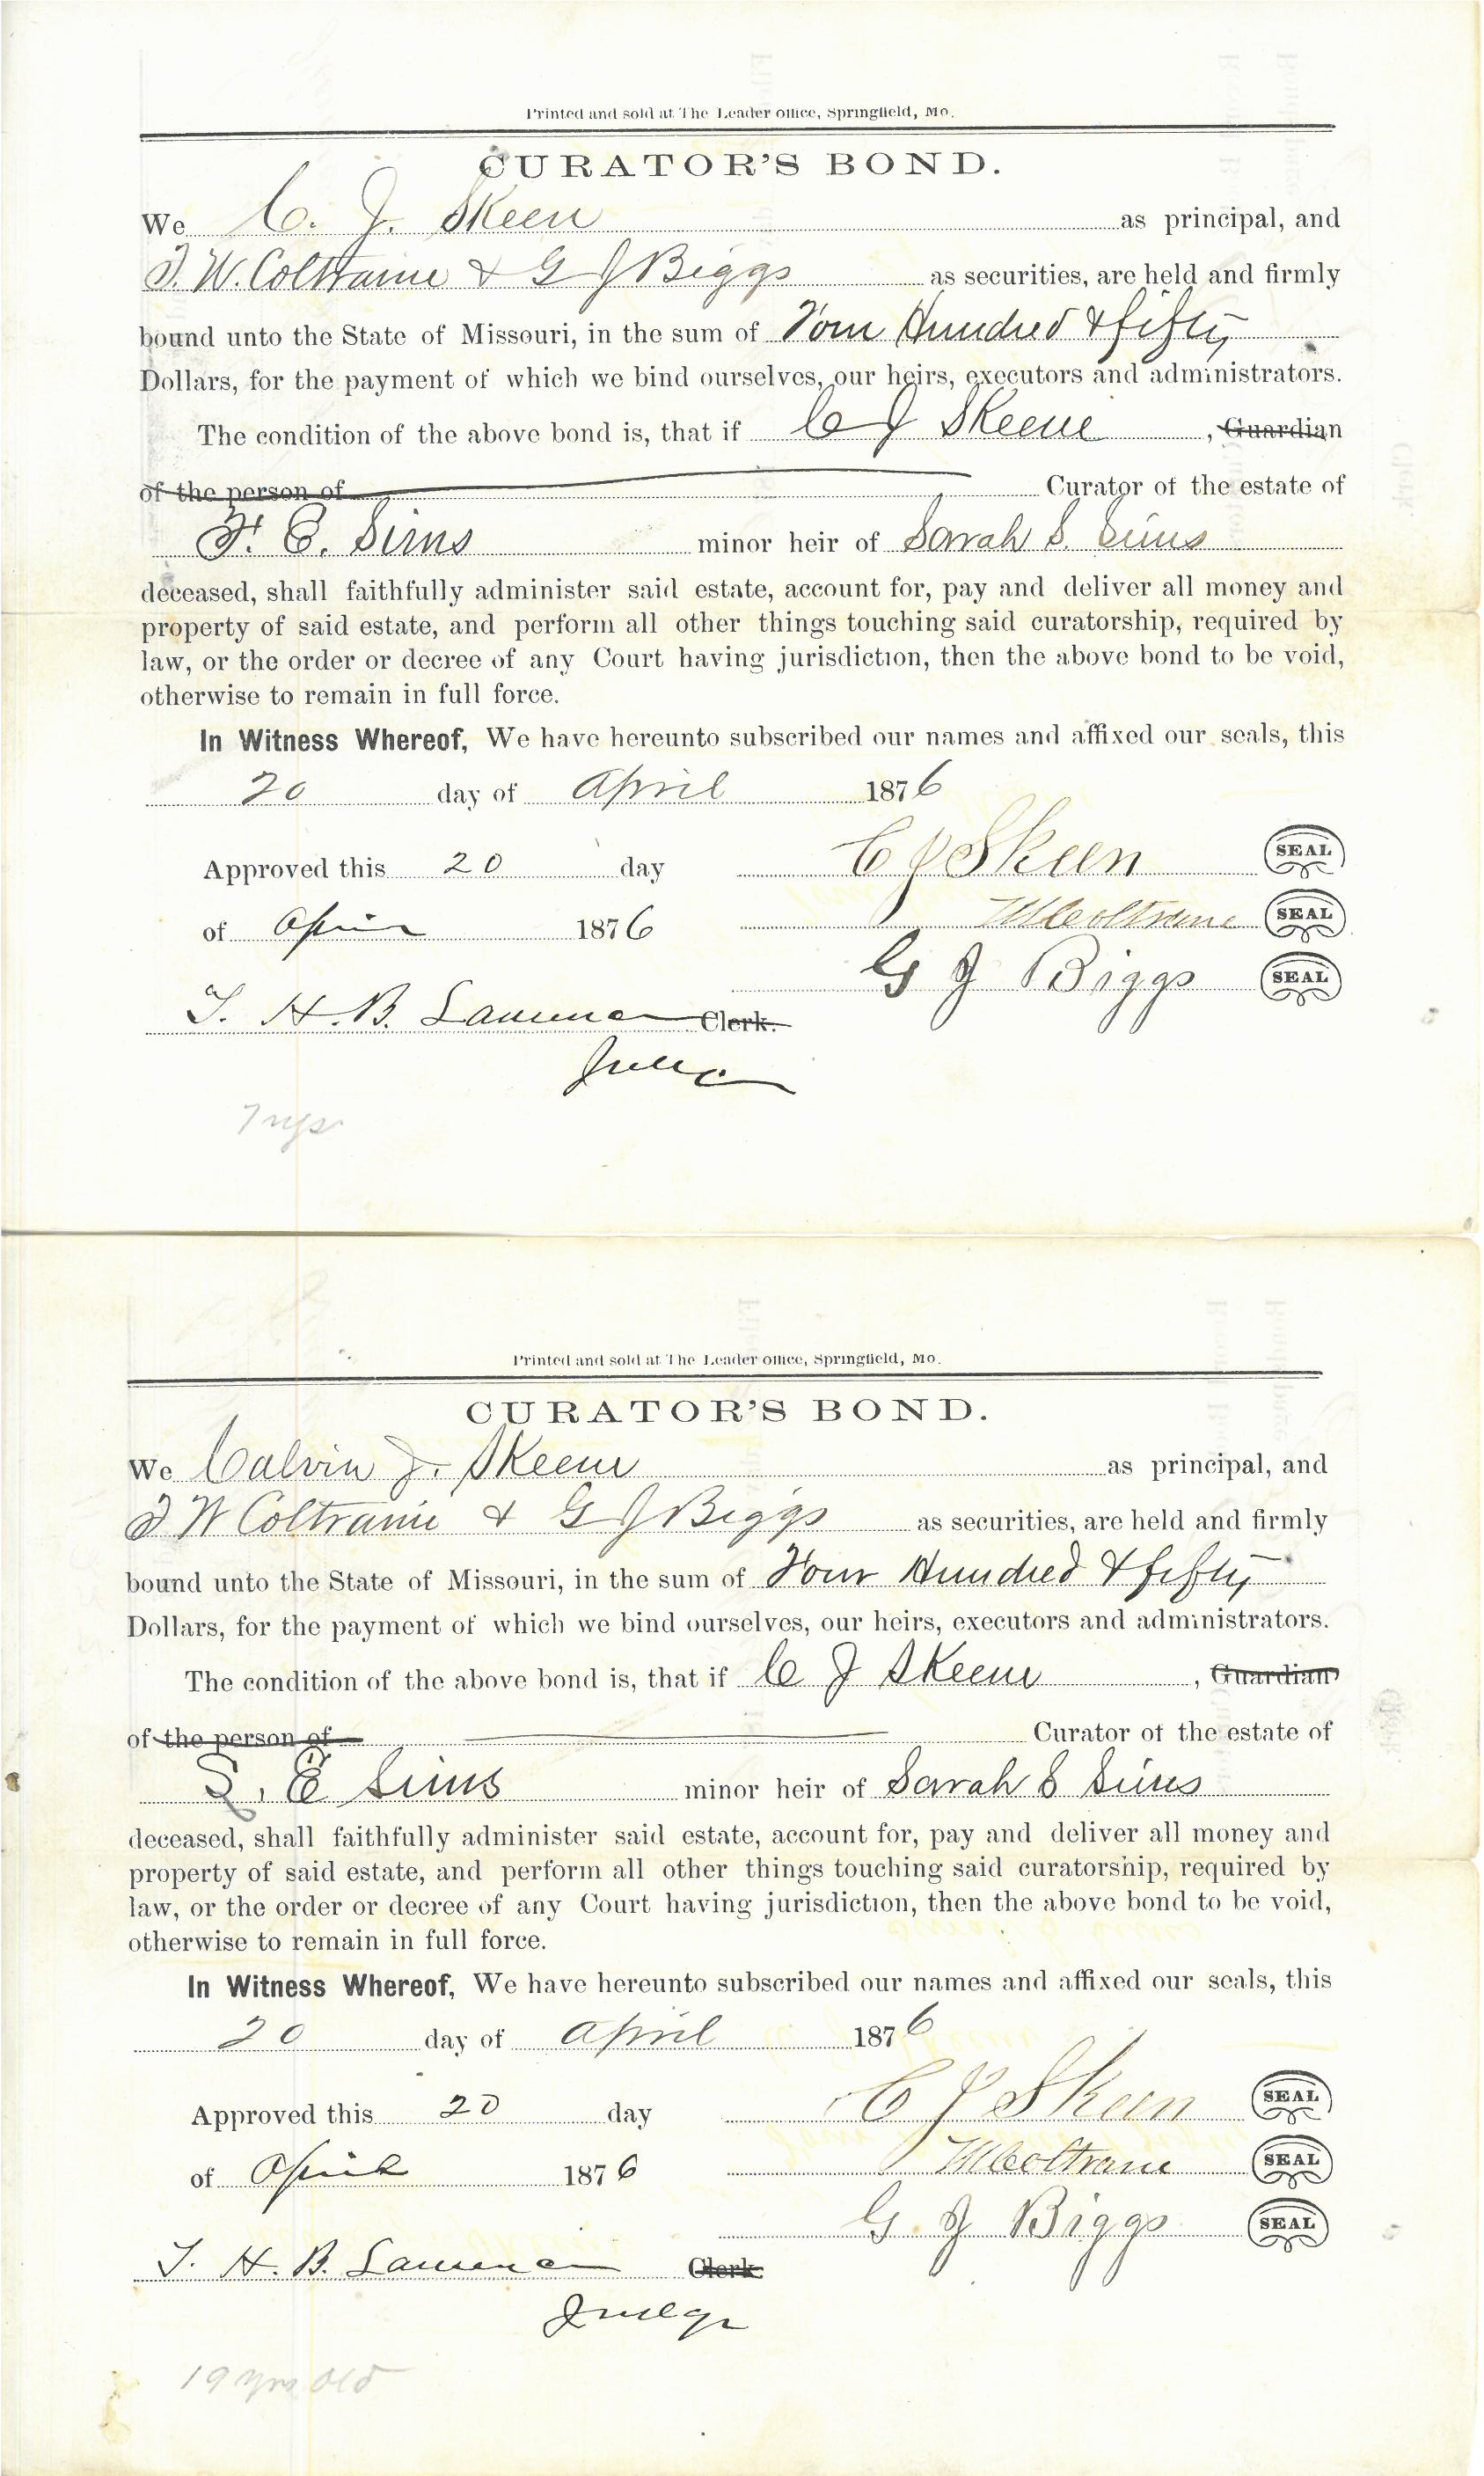 Printed and sold at The Leader office, Springfield, Mo.
CURATOR'S BOND.
We C. J. Skeen as principal, and
T. W. Coltraine & G J Biggs as securities, are held and firmly
bound unto the State of Missouri, in the sum of Four Hundred & fifty
Dollars, for the payment of which we bind ourselves, our heirs, executors and administrators.
The condition of the above bond is, that if C J Skeene, Guardian
of the person of Curator of the estate of
F. E. Sims minor heir of Sarah S. Sims
deceased, shall faithfully administer said estate, account for, pay and deliver all money and
property of said estate, and perform all other things touching said curatorship, required by
law, or the order or decree of any Court having jurisdiction, then the above bond to be void,
otherwise to remain in full force.
In Witness Whereof, We have hereunto subscribed our names and affixed our seals, this
20 day of April 1876
Approved this 20 day C J Skeen SEAL
of April 1876 Coltrane SEAL
G J Biggs SEAL
T. H. B. Clerk.
Judge
7 yrs
Printed and sold at The Leader office, Springfield, Mo.
CURATOR'S BOND.
We Calvin J. Skeen as principal, and
T W Coltraine & G J Biggs as securities, are held and firmly
bound unto the State of Missouri, in the sum of Four Hundred & fifty
Dollars, for the payment of which we bind ourselves, our heirs, executors and administrators.
The condition of the above bond is, that if C J Skeen, Guardian
of the person of Curator of the estate of
S. E Sims minor heir of Sarah S Sims
deceased, shall faithfully administer said estate, account for, pay and deliver all money and
property of said estate, and perform all other things touching said curatorship, required by
law, or the order or decree of any Court having jurisdiction, then the above bond to be void,
otherwise to remain in full force.
In Witness Whereof, We have hereunto subscribed our names and affixed our seals, this
20 day of April 1876
Approved this 20 day C J Skeen SEAL
of April 1876 Coltrane SEAL
G. J Biggs SEAL
T. H. B. Clerk
Judge
19 yrs old